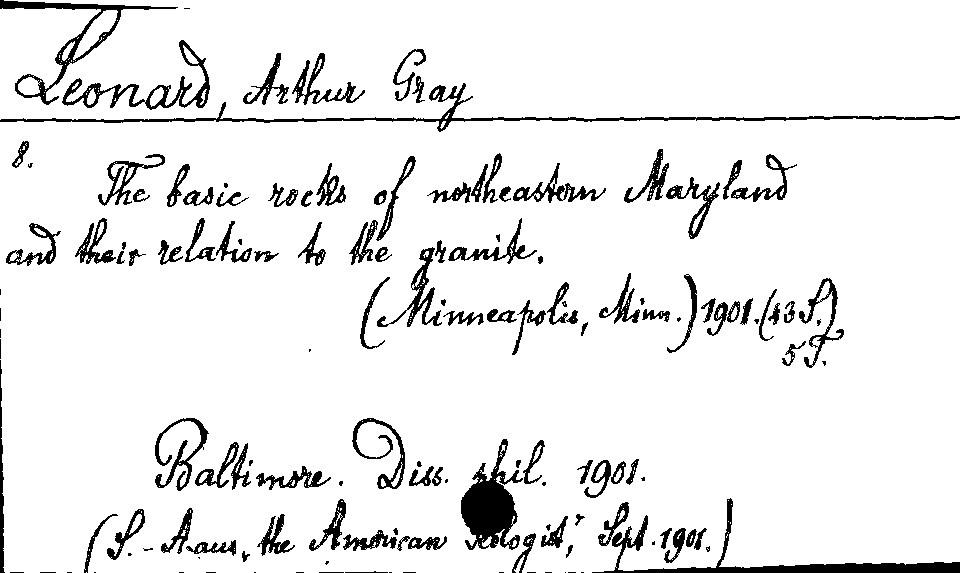 Leonard, Arthur Gray
8.
The basic rocks of northeastern Maryland
and their relation to the granite.
(Minneapolis, Minn.) 1901. (43 S.)
5 T.
Baltimore. Diss. phil. 1901.
(S.-A. aus, the American Sept. 1901.)